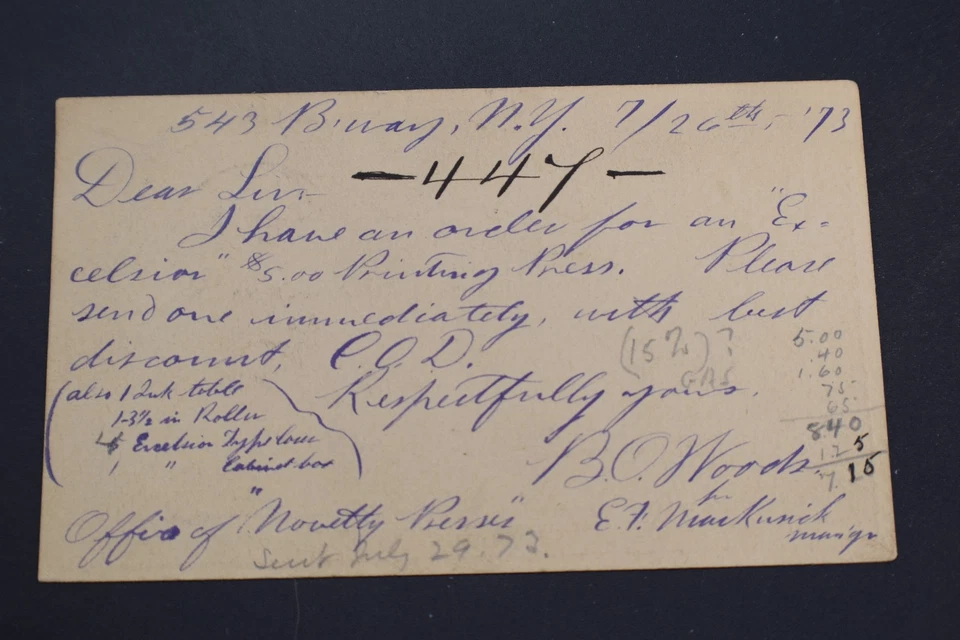 543 B'way, N.Y. 7/26th, '73
— 447 —
Dear Sir:
I have an order for an "Ex=
celsior" $5.00 Printing Press. Please
send one immediately, with best
discount, C.O.D.
(15%)?
Respectfully yours.
(also 1 Ink table
1-3½ in Roller
Excelsior Type case
" Cabinet box)
B.O. Woods.
for
E.F. MacKusick
Man'gr
Office of "Novelty Presses"
Sent July 29.73.
5.00
.40
1.60
75
65
840
1.25
7.15